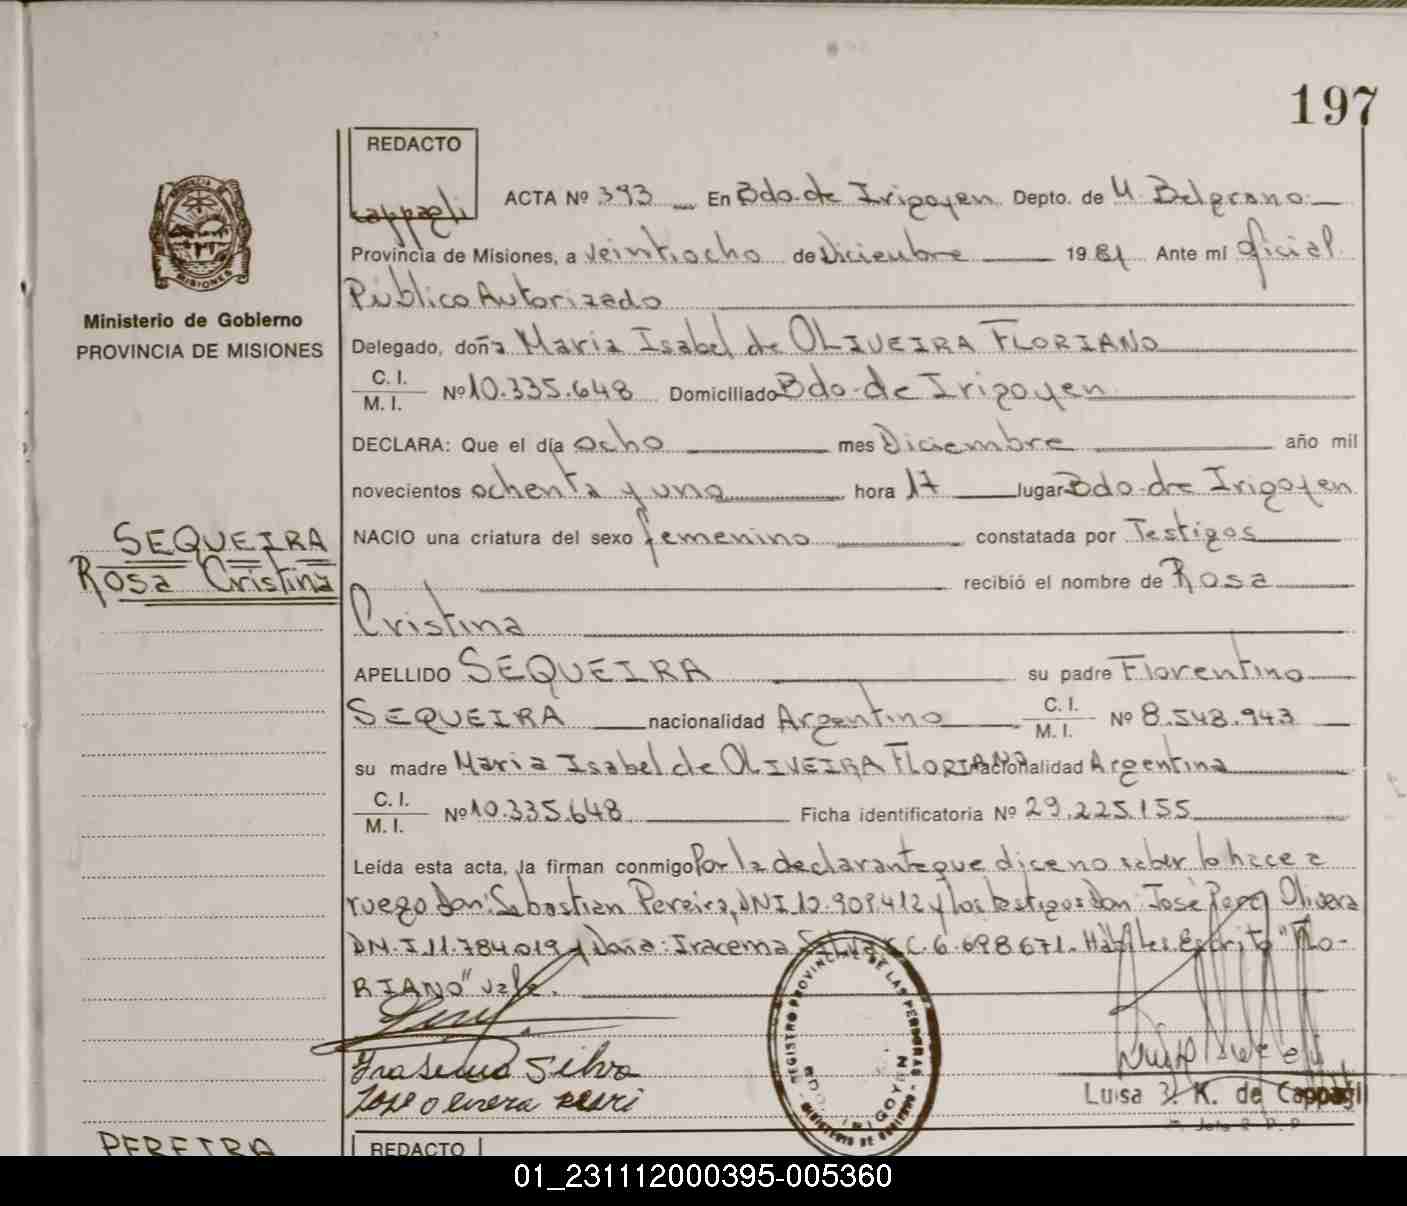 197
REDACTO
Cappagli
ACTA Nº 393 En Bdo. de Irigoyen Depto. de M. Belgrano.
Provincia de Misiones, a veintiocho de Diciembre 1981 Ante mi Oficial
Público Autorizado
Delegado, doña Maria Isabel de OLIVEIRA FLORIANO
C. I.
M. I. Nº 10.335.648 Domiciliado Bdo. de Irigoyen
DECLARA: Que el día ocho mes Diciembre año mil
novecientos ochenta y uno hora 17 lugar Bdo. de Irigoyen
NACIO una criatura del sexo femenino constatada por Testigos
recibió el nombre de Rosa
Cristina
APELLIDO SEQUEIRA su padre Florentino
SEQUEIRA nacionalidad Argentino C. I.
M. I. Nº 8.548.943
su madre Maria Isabel de OLIVEIRA FLORIANO nacionalidad Argentina
C. I.
M. I. Nº 10.335.648 Ficha identificatoria Nº 29.225.155
Leída esta acta, la firman conmigo Por la declarante que dice no saber lo hace a
ruego Don: Sebastian Pereira, DNI 12.909.412 y los testigos Don José Olivera
DN.I. 11.784.019 y Doña: Iracema Silva C.C. 6.698.671. Habiles. Escrito "FLO-
RIANO" vale.
Silva
Luisa K. de Cappagli
REGISTRO PROVINCIAL DE LAS PERSONAS
BDO. IRIGOYEN
MINISTERIO DE GOBIERNO
PROVINCIA DE
MISIONES
Ministerio de Gobierno
PROVINCIA DE MISIONES
SEQUEIRA
Rosa Cristina
PEREIRA
REDACTO
01_231112000395-005360